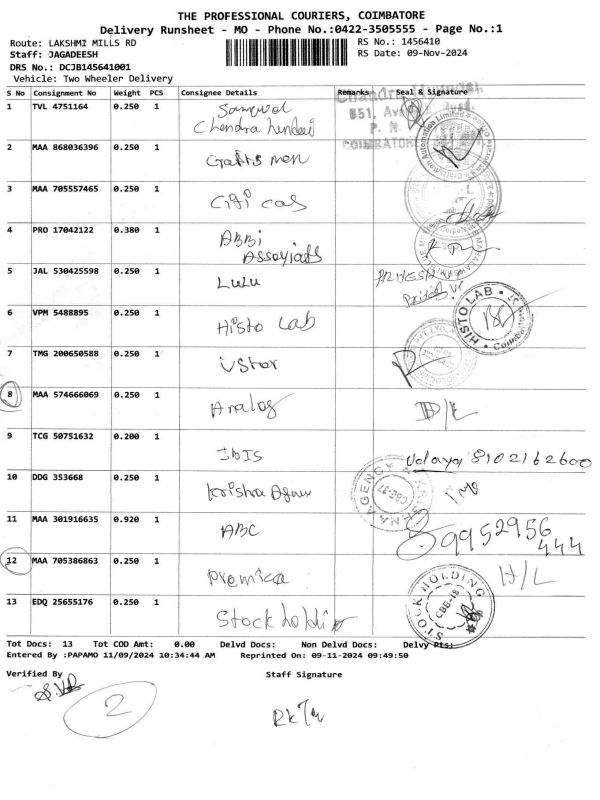 THE PROFESSIONAL COURIERS, COIMBATORE
Delivery Runsheet - MO - Phone No.:0422-3505555 - Page No.:1
Route: LAKSHMI MILLS RD
RS No.: 1456410
Staff: JAGADEESH
RS Date: 09-Nov-2024
DRS No.: DCJB145641001
Vehicle: Two Wheeler Delivery
S No Consignment No Weight PCS Consignee Details Remarks Seal & Signature
1 TVL 4751164 0.250 1
COIMBATORE
2 MAA 868036396 0.250 1
3 MAA 705557465 0.250 1 Citi
4 PRO 17042122 0.380 1 ABBI
5 JAL 530425598 0.250 1 LULU
6 VPM 5488895 0.250 1 Histo Lab
HISTO LAB
7 TMG 200650588 0.250 1
8 MAA 574666069 0.250 1 Analog D/L
9 TCG 50751632 0.200 1 IBIS Udaya 8102162600
10 DDG 353668 0.250 1 Krishna
AGENCY
CBE-37
11 MAA 301916635 0.920 1 ABC 89952956
444
12 MAA 705386863 0.250 1 Premica H/L
13 EDQ 25655176 0.250 1 Stock holdi
STOCK HOLDING
CBE-18
Tot Docs: 13 Tot COD Amt: 0.00 Delvd Docs: Non Delvd Docs: Delvy Pts:
Entered By :PAPAMO 11/09/2024 10:34:44 AM Reprinted On: 09-11-2024 09:49:50
Verified By Staff Signature
2